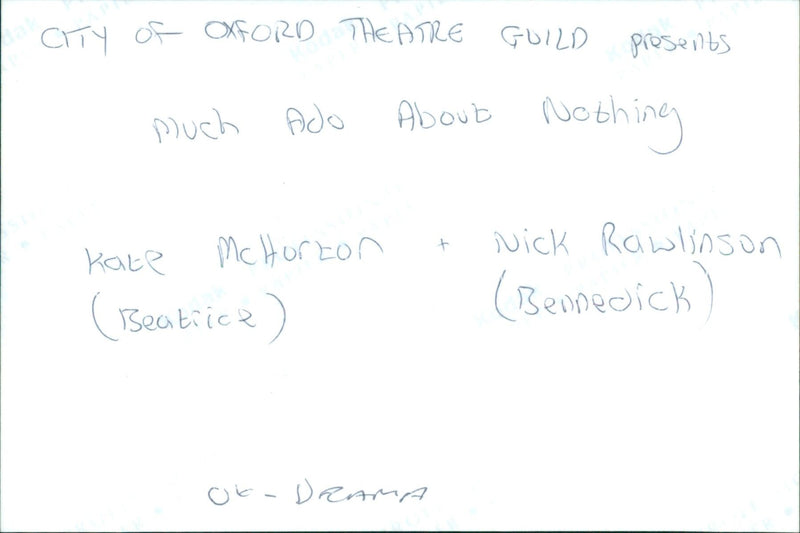 CITY OF OXFORD THEATRE GUILD presents
Much Ado About Nothing
Kate McHorton + Nick Rawlinson
(Beatrice) (Bennedick)
OX - DRAMA